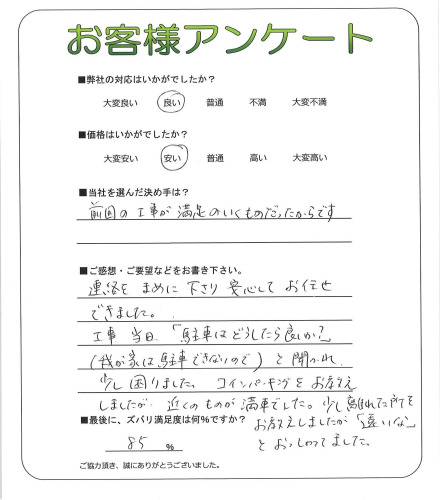 お客様アンケート
■弊社の対応はいかがでしたか？
大変良い 良い 普通 不満 大変不満
■価格はいかがでしたか？
大変安い 安い 普通 高い 大変高い
■当社を選んだ決め手は？
前回の工事が満足のいくものだったからです
■ご感想・ご要望などをお書き下さい。
連絡をまめに下さり安心してお任せ
できました。
工事当日「駐車はどうしたら良いか？」
（我が家は駐車できないので）と聞かれ
少し困りました、コインパーキングをお教え
しましたが近くのものが満車でした。少し離れた所を
お教えしましたが「遠いな」
とおっしゃってました。
■最後に、ズバリ満足度は何%ですか？
85 %
ご協力頂き、誠にありがとうございました。